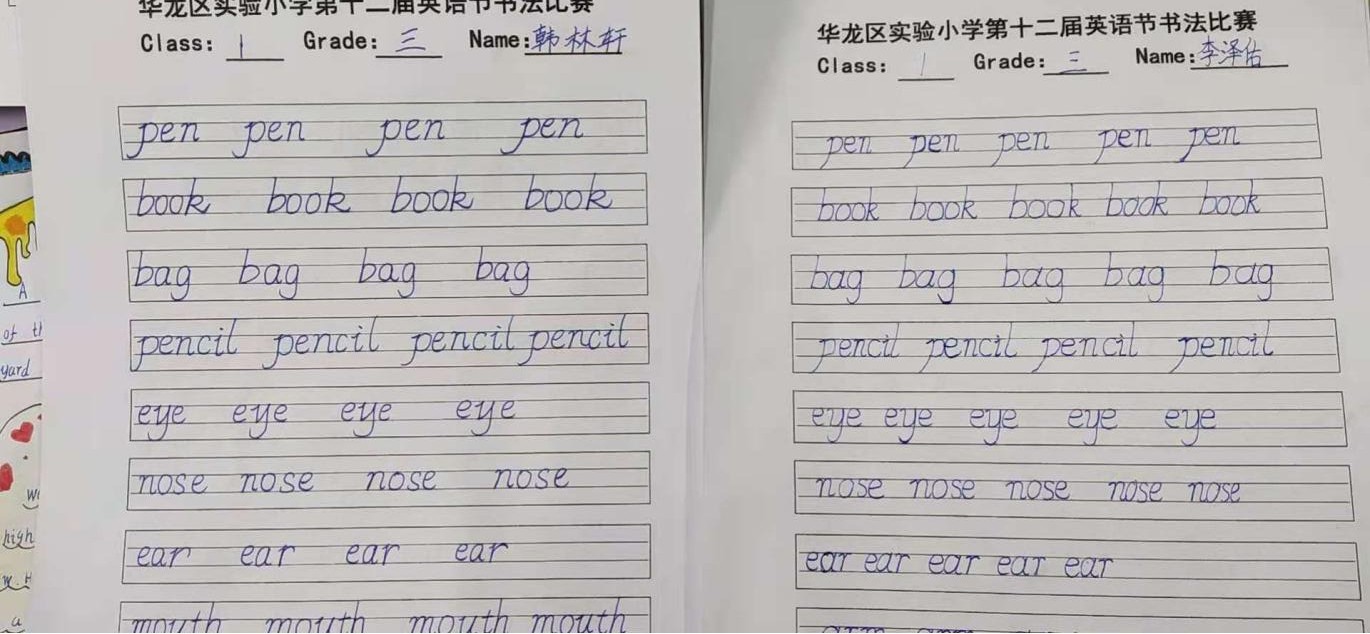 A
of th
yard
high
w. H
a
华龙区实验小学第十二届英语节书法比赛
Class: 1 Grade: 三 Name: 韩林轩
pen pen pen pen
book book book book
bag bag bag bag
pencil pencil pencil pencil
eye eye eye eye
nose nose nose nose
ear ear ear ear
mouth mouth mouth mouth
华龙区实验小学第十二届英语节书法比赛
Class: 1 Grade: 三 Name: 李泽佑
pen pen pen pen pen
book book book book book
bag bag bag bag bag
pencil pencil pencil pencil
eye eye eye eye eye
nose nose nose nose nose
ear ear ear ear ear
arm arm arm arm